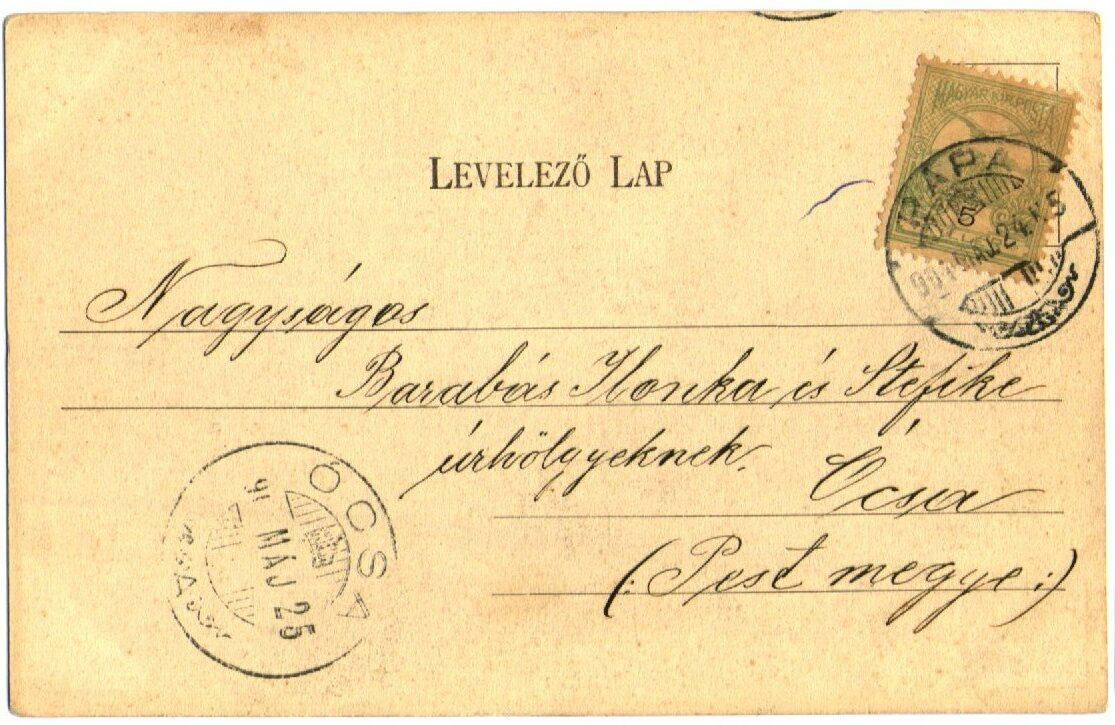 LEVELEZŐ LAP
MAGYAR KIR. POSTA
5
PÁPA
901 MÁJ. 24.
Nagyságos
Barabás Ilonka és Stefike
úrhölgyeknek.
Ócsa
(: Pest megye :)
ÓCSA
MÁJ 25